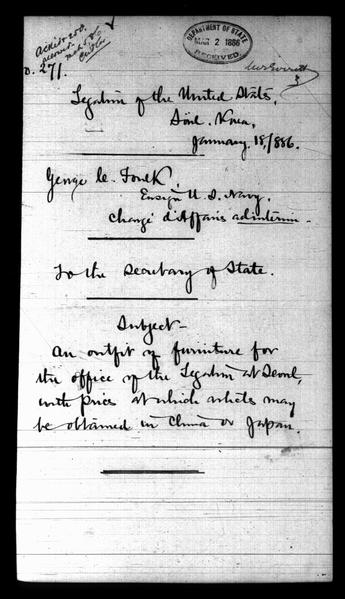 DEPARTMENT OF STATE
MAR 2 1886
RECEIVED.
Mr Everett
271.
Legation of the United States,
Söul, Korea,
January 18, 1886.
George C. Foulk,
Ensign U. S. Navy.
Chargé d'Affaires ad interim.
To the Secretary of State.
Subject—
An outfit of furniture for
the office of the Legation at Seoul,
with prices at which articles may
be obtained in China or Japan.